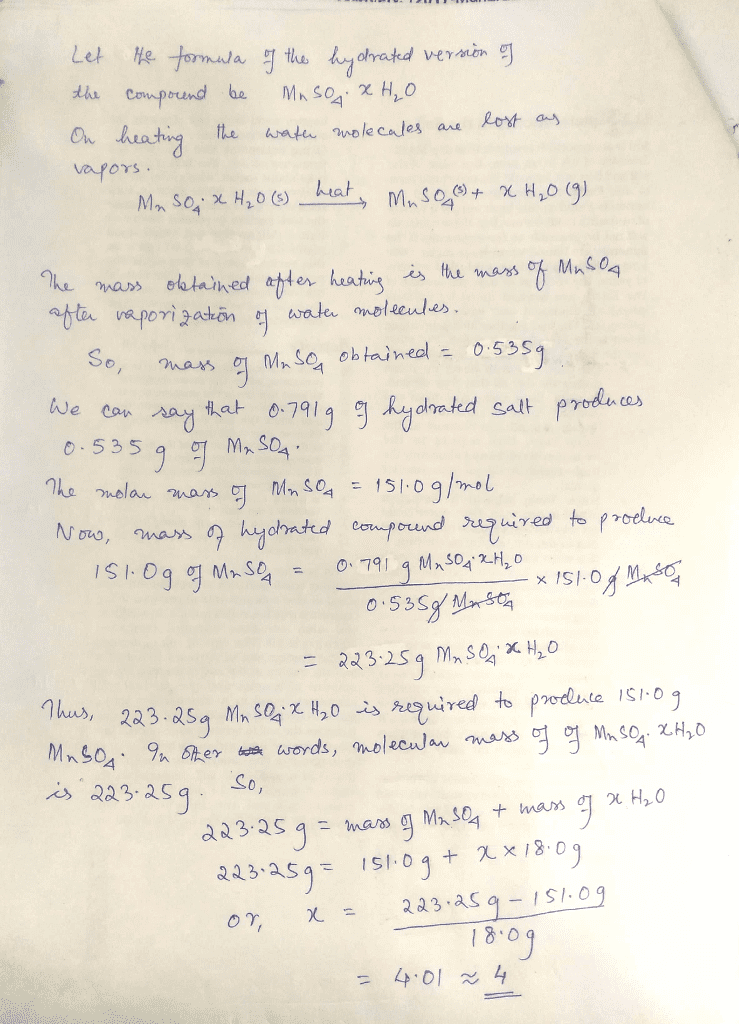 Let the formula of the hydrated version of
the compound be MnSO₄. x H₂O
On heating the water molecules are lost as
vapors.
MnSO₄. x H₂O (s) heat → MnSO₄(s) + x H₂O (g)
The mass obtained after heating is the mass of MnSO₄
after vaporization of water molecules.
So, mass of MnSO₄ obtained = 0.535g
We can say that 0.791g of hydrated salt produces
0.535 g of MnSO₄.
The molar mass of MnSO₄ = 151.0 g/mol
Now, mass of hydrated compound required to produce
151.0g of MnSO₄ = 0.791 g MnSO₄.xH₂O / 0.535g MnSO₄ × 151.0 g MnSO₄
= 223.25g MnSO₄.x H₂O
Thus, 223.25g MnSO₄.x H₂O is required to produce 151.0 g
MnSO₄. In other words, molecular mass of of MnSO₄. xH₂O
is 223.25g. So,
223.25 g = mass of MnSO₄ + mass of x H₂O
223.25g = 151.0 g + x × 18.0g
or, x = 223.25 g – 151.0g / 18.0g
= 4.01 ≈ 4